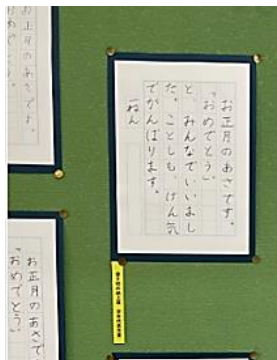 お正月のあさです。
「おめでとう」
と、みんなでいいまし
た。ことしも、げん気
でがんばります。
一ねん
お正月のあさで
「おめでとう」